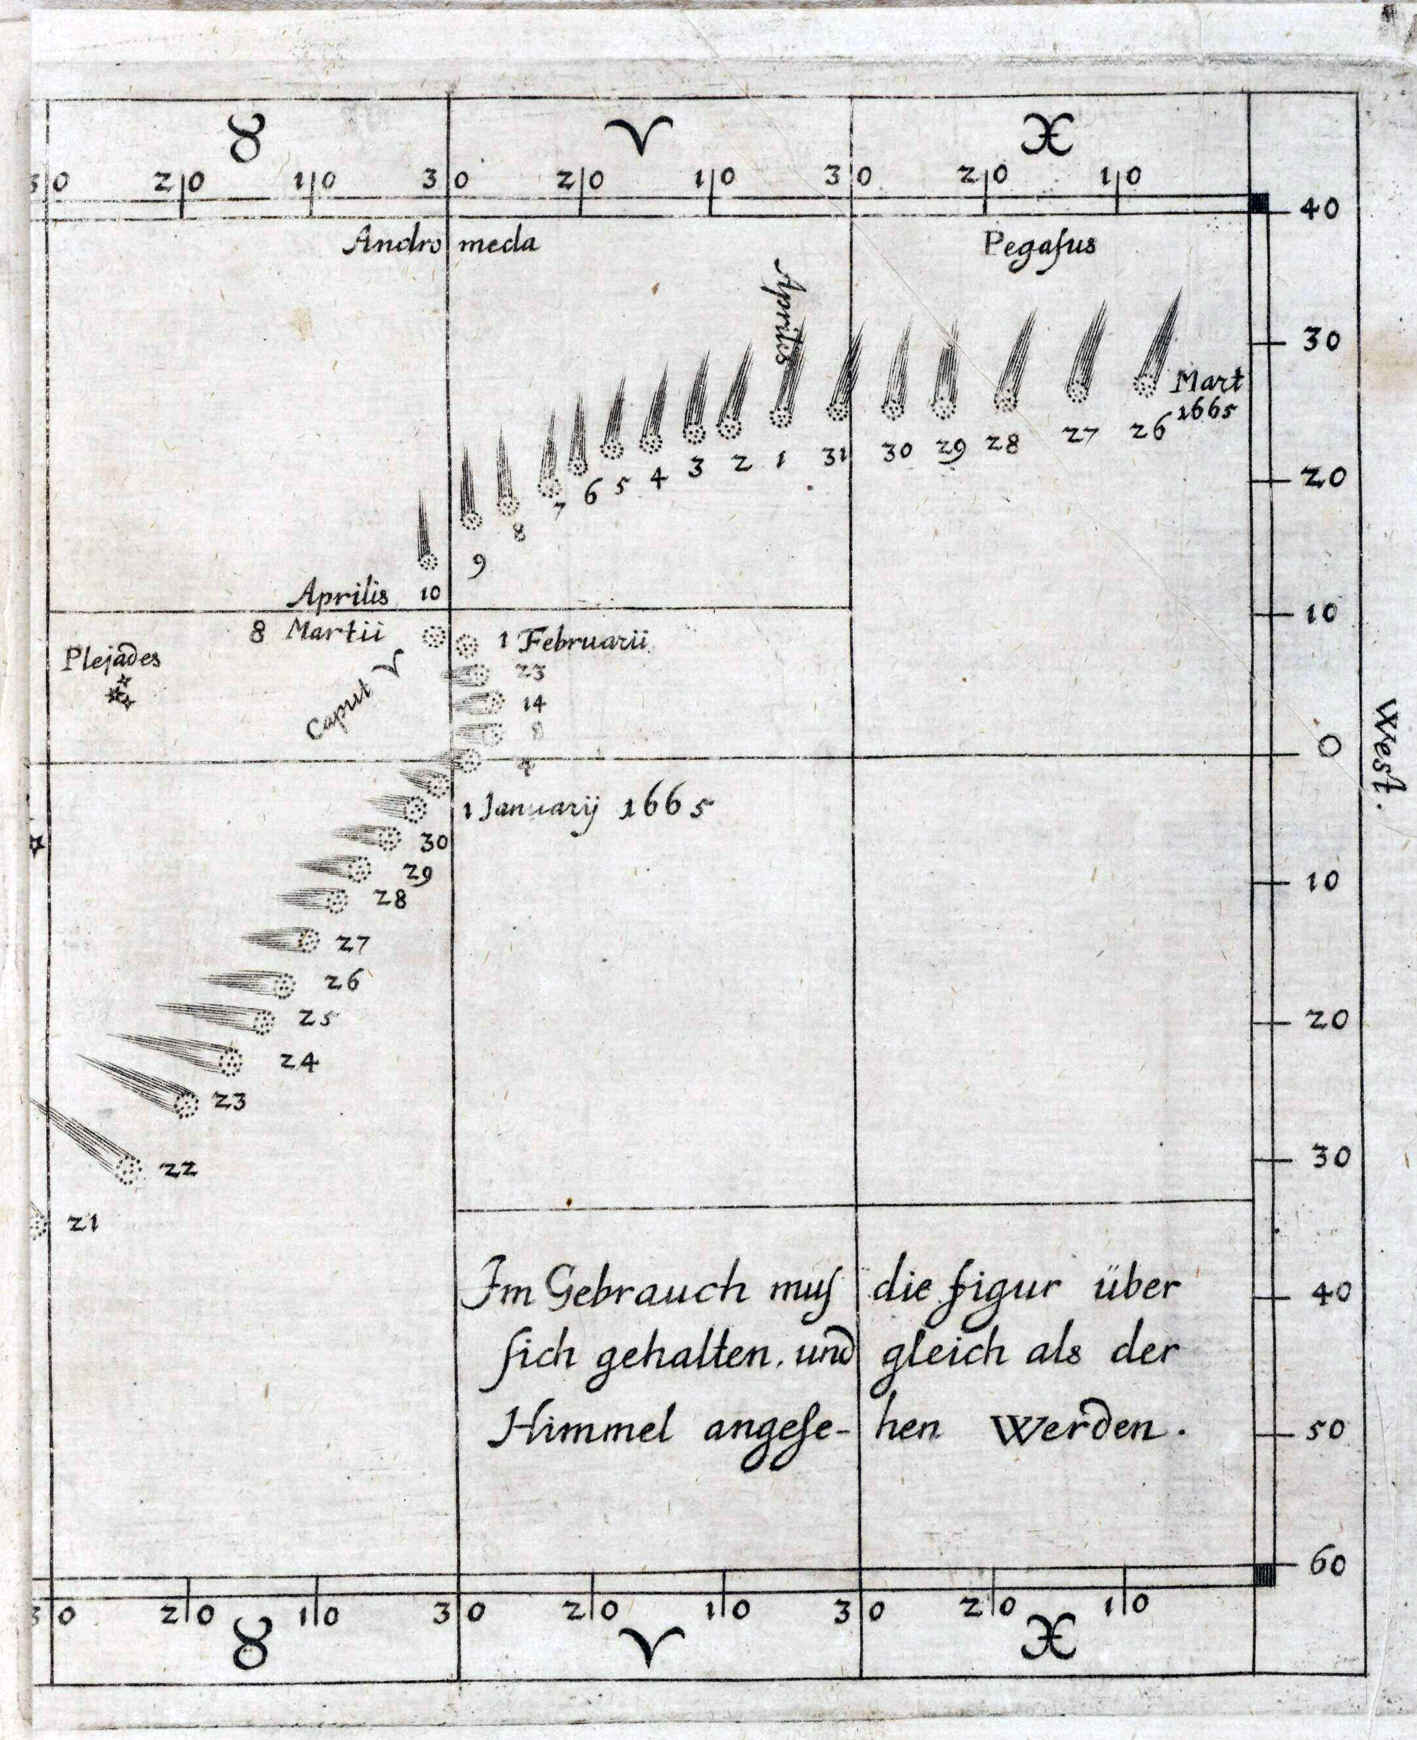 ♉ ♈ ♓
30 20 10 30 20 10 30 20 10
40
Andromeda
Pegaſus
Aprilis
30
Mart
1665
26
27
28
29
30
31
1
2
3
4
5
6
7
8
9
20
Aprilis 10
10
8 Martii
1 Februarii
Plejades
23
Caput ♈
14
8
4
0
West.
1 Januarij 1665
30
29
10
28
27
26
25
20
24
23
22
30
21
Im Gebrauch muſ die figur über
ſich gehalten, und gleich als der
Himmel angeſe-hen Werden.
40
50
60
30 20 10 30 20 10 30 20 10
♉ ♈ ♓